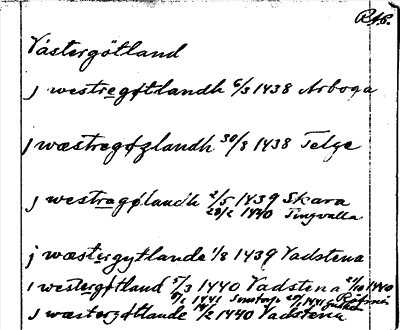 R.48.
Västergötland
j westregøtlandh 6/3 1438 Arboga
j wæstregøzlandh 30/8 1438 Telge
j westragølandh 2/5 1439 Skara
28/2 1440 Tingvalla
j wæstergytlande 1/8 1439 Vadstena
j westergøtland 5/3 1440 Vadstena 21/10 1440
1441
j wæstergøtlande 14/2 1440 Vadstena